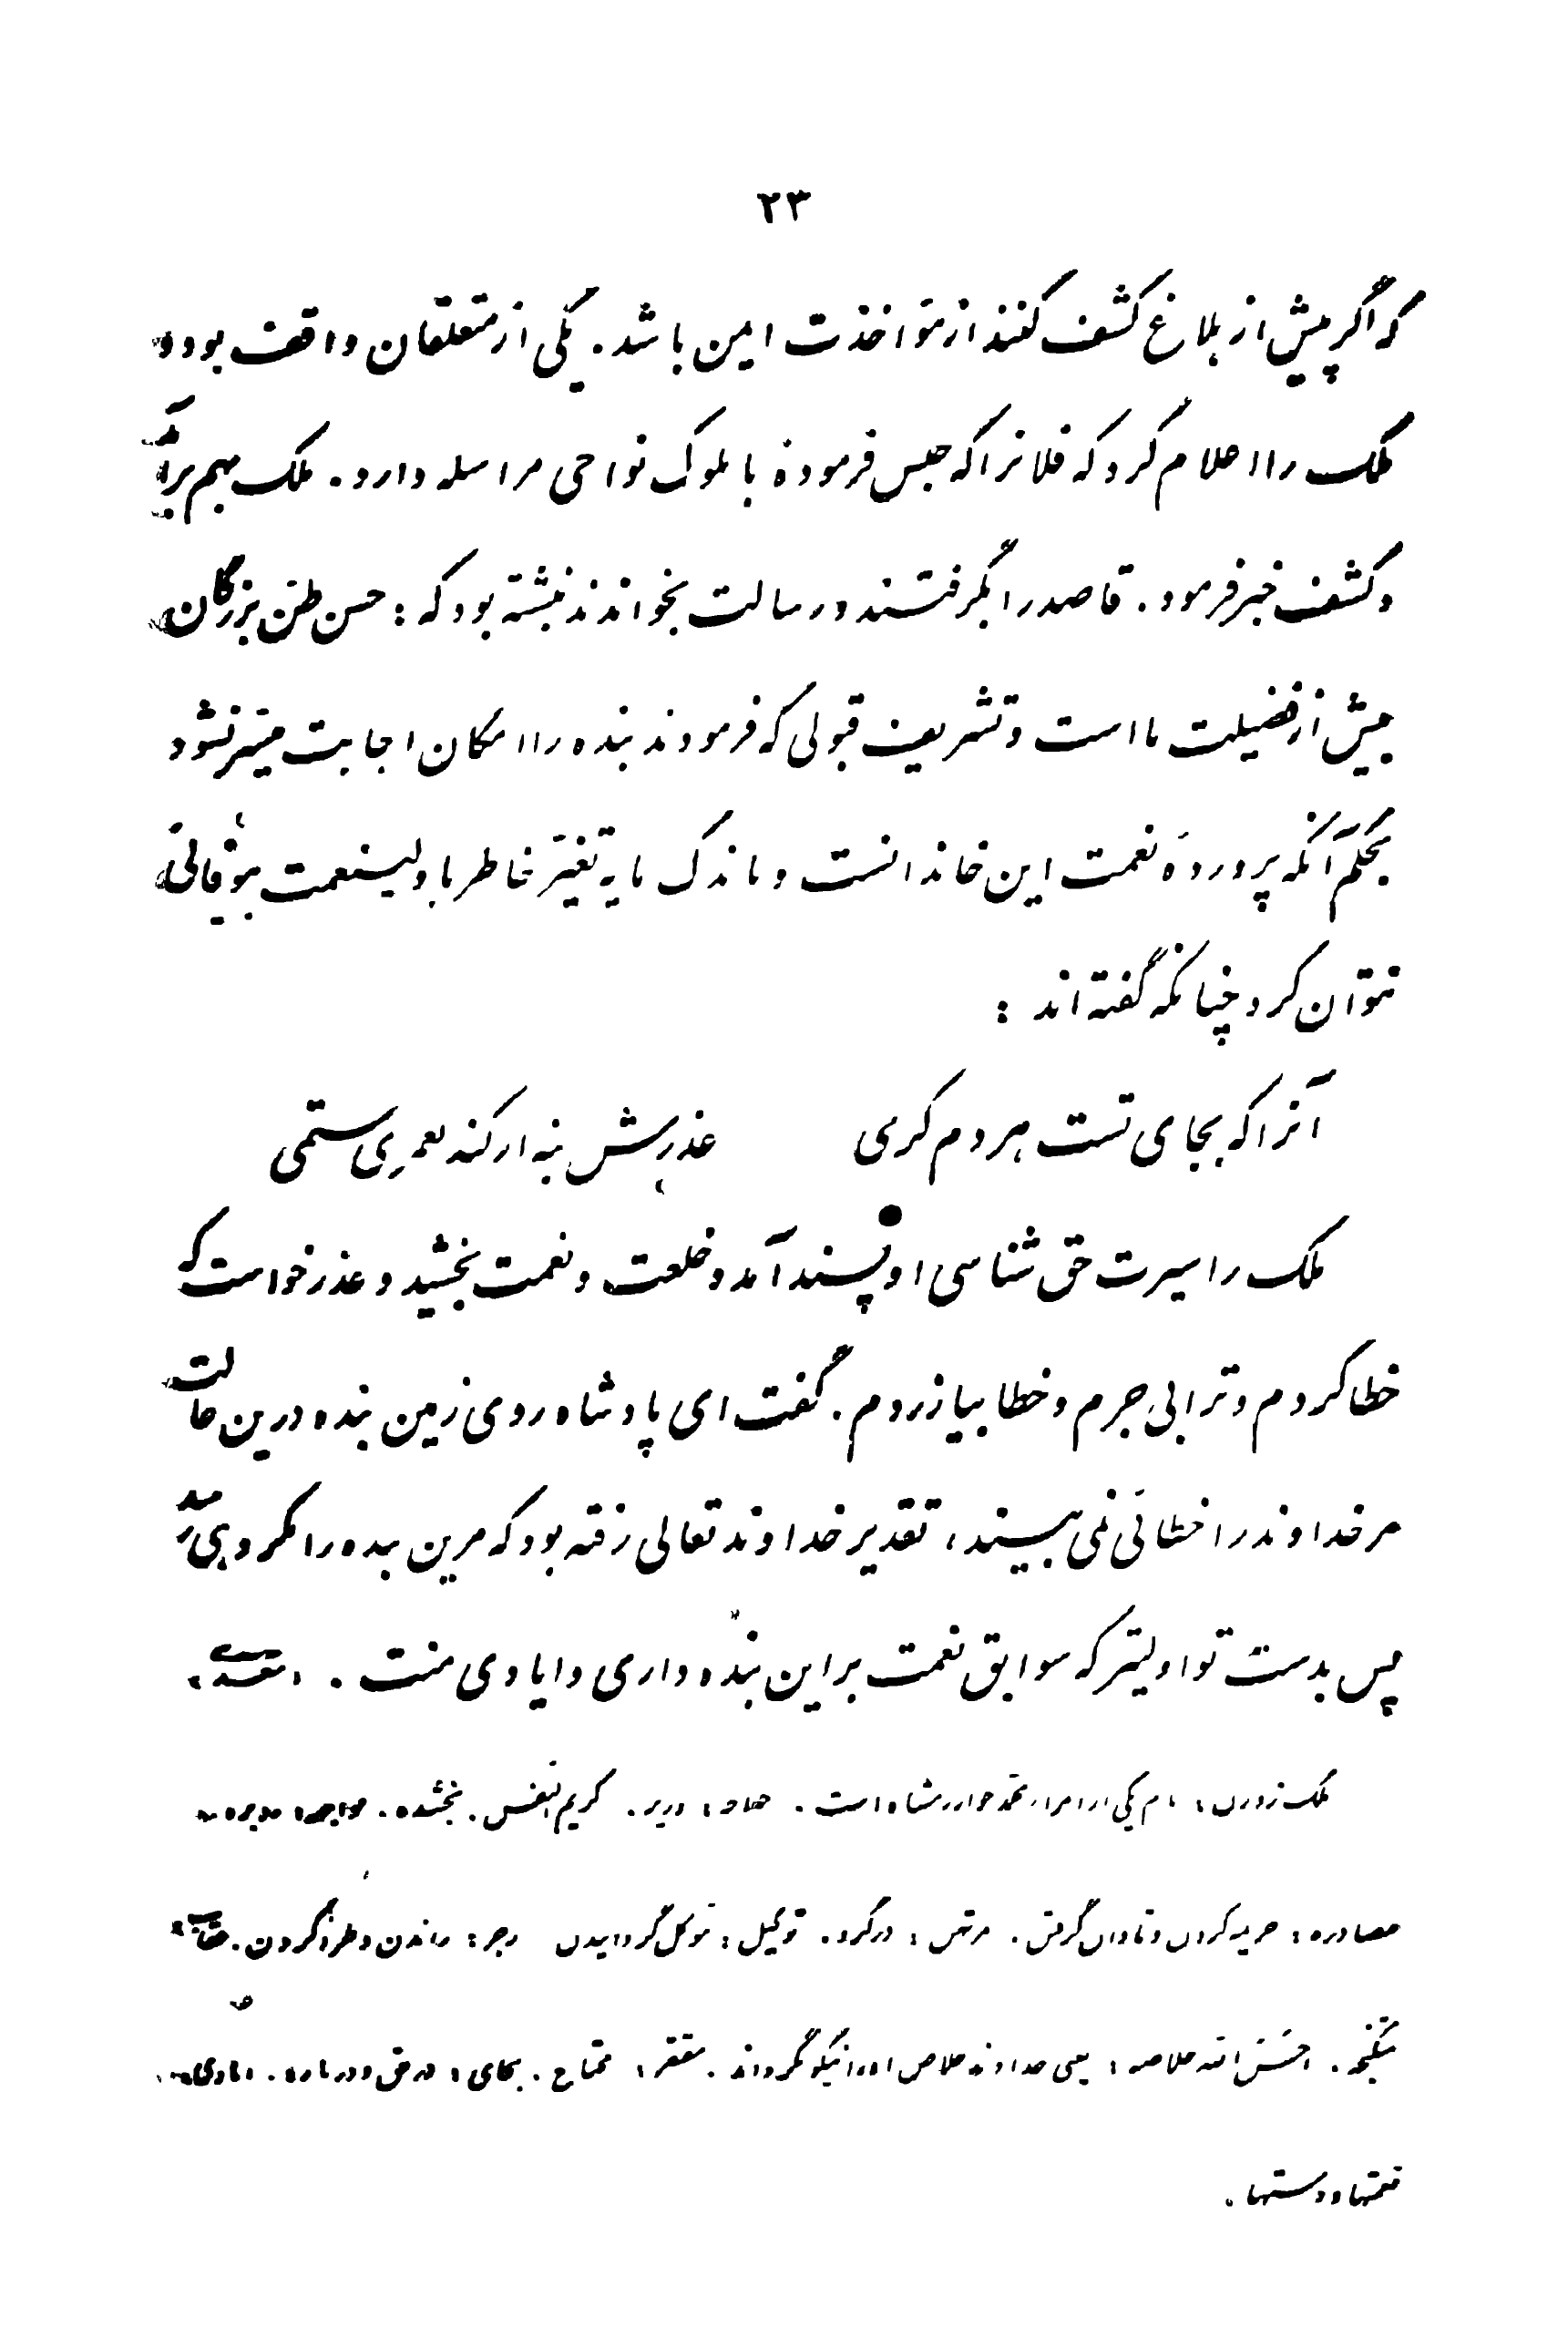 ۲۳
که اگر پیش از بلاغ کشف کنند از مؤاخذت ایمن باشد. یکی از متعلقان واقف بود و
ملک را اعلام کرد که فلانرا که حبس فرموده با ملوک نواحی مراسله دارد. ملک بهم برآمد
و کشف خبر فرمود. قاصد را بگرفتند و رسالت بخواندند نبشته بود که: حسن ظن بزرگان
بیش از فضیلت ما است و تشریف قبولی که فرمودند بنده را امکان اجابت میسر نشود
بحکم آنکه پروردهٔ نعمت این خاندانست و باندک مایه تغیّر خاطر با ولینعمت بیوفائی
نتوان کرد چنانکه گفته‌اند:
آنرا که بجای تست هر دم کرمی عذرش بنه ار کند بعمری ستمی
ملک را سیرت حق شناسی او پسند آمد و خلعت و نعمت بخشید و عذر خواست که
خطا کردم و ترا بی جرم و خطا بیازردم. گفت ای پادشاه روی زمین بنده درین حالت
مر خداوند را خطائی نمی بیند، تقدیر خداوند تعالی رفته بود که مرین بنده را مکروهی رسد
پس بدست تو اولیتر که سوابق نعمت بر این بنده داری و ایادی منت. «سعدی»
ملک زوزن: نام یکی از امراء محمد خوارزمشاه است. وزیر. کریم النفس. بخشنده. مواجهه:
مصادره: جریمه کردن و تاوان گرفتن. مرتهن: در گرو. توکیل: موکل گردانیدن زجر: راندن و طرد کردن.
شکنجه. احسن الله خلاصه: یعنی خداوند خلاص او را نیکو گرداند. مفتقر: محتاج. بجای: در حق و درباره. ایادی:
نعمتها و دستها.